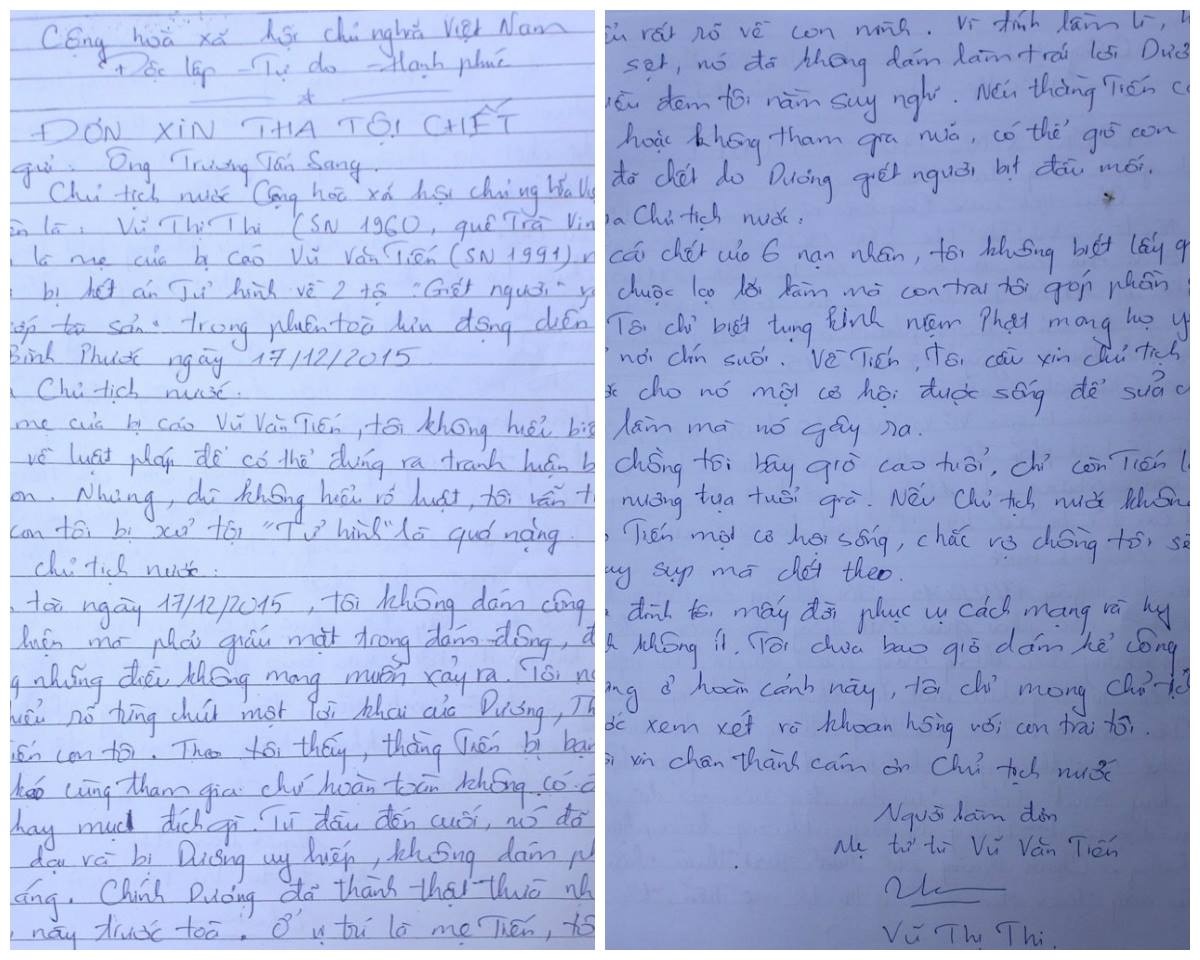 Cộng hoà xã hội chủ nghĩa Việt Nam
Độc lập - Tự do - Hạnh phúc
ĐƠN XIN THA TỘI CHẾT
gửi: Ông Trương Tấn Sang.
Chủ tịch nước Cộng hoà xã hội chủ nghĩa
là: Vũ Thị Thi (SN 1960, quê Trà Vin
là mẹ của bị cáo Vũ Văn Tiến (SN 1991)
bị kết án Tử hình về 2 tội "Giết người"
tài sản" trong phiên toà lưu động diễn
Bình Phước ngày 17/12/2015
Chủ tịch nước.
mẹ của bị cáo Vũ Văn Tiến, tôi không hiểu biế
về luật pháp để có thể đứng ra tranh luận b
on. Nhưng, dù không hiểu rõ luật, tôi vẫn t
con tôi bị xử tội "Tử hình" là quá nặng.
chủ tịch nước:
toà ngày 17/12/2015, tôi không dám công
hiện mà phải giấu mặt trong đám đông, đ
g những điều không mong muốn xảy ra. Tôi n
rõ từng chút một lời khai của Dương, Th
iến con tôi. Theo tôi thấy, thằng Tiến bị bạn
kéo cùng tham gia chứ hoàn toàn không có
hay mục đích gì. Từ đầu đến cuối, nó đã
dại và bị Dương uy hiếp, không dám ph
áng. Chính Dương đã thành thật thừa nh
này trước toà. Ở vị trí là mẹ Tiến, tô
ểu rất rõ về con mình. Vì tính lầm lì,
sẹt, nó đã không dám làm trái lời Dươ
iều đêm tôi nằm suy nghĩ. Nếu thằng Tiến c
hoặc không tham gia nữa, có thể giờ con
đã chết do Dương giết người bịt đầu mối.
a Chủ tịch nước.
cái chết của 6 nạn nhân, tôi không biết lấy g
chuộc lại lỗi lầm mà con trai tôi góp phần
Tôi chỉ biết tụng kinh niệm Phật mong họ y
nơi chín suối. Về Tiến, tôi cầu xin chủ tịch
cho nó một cơ hội được sống để sửa
lầm mà nó gây ra.
chồng tôi bây giờ cao tuổi, chỉ còn Tiến l
nương tựa tuổi già. Nếu Chủ tịch nước không
Tiến một cơ hội sống, chắc vợ chồng tôi sẽ
uy sụp mà chết theo.
đình tôi mấy đời phục vụ cách mạng và hy
h không ít. Tôi chưa bao giờ dám kể công
ng ở hoàn cảnh này, tôi chỉ mong chủ tịc
ớc xem xét và khoan hồng với con trai tôi.
i xin chân thành cám ơn Chủ tịch nước
Người làm đơn
Mẹ tử tù Vũ Văn Tiến
Vũ Thị Thi.